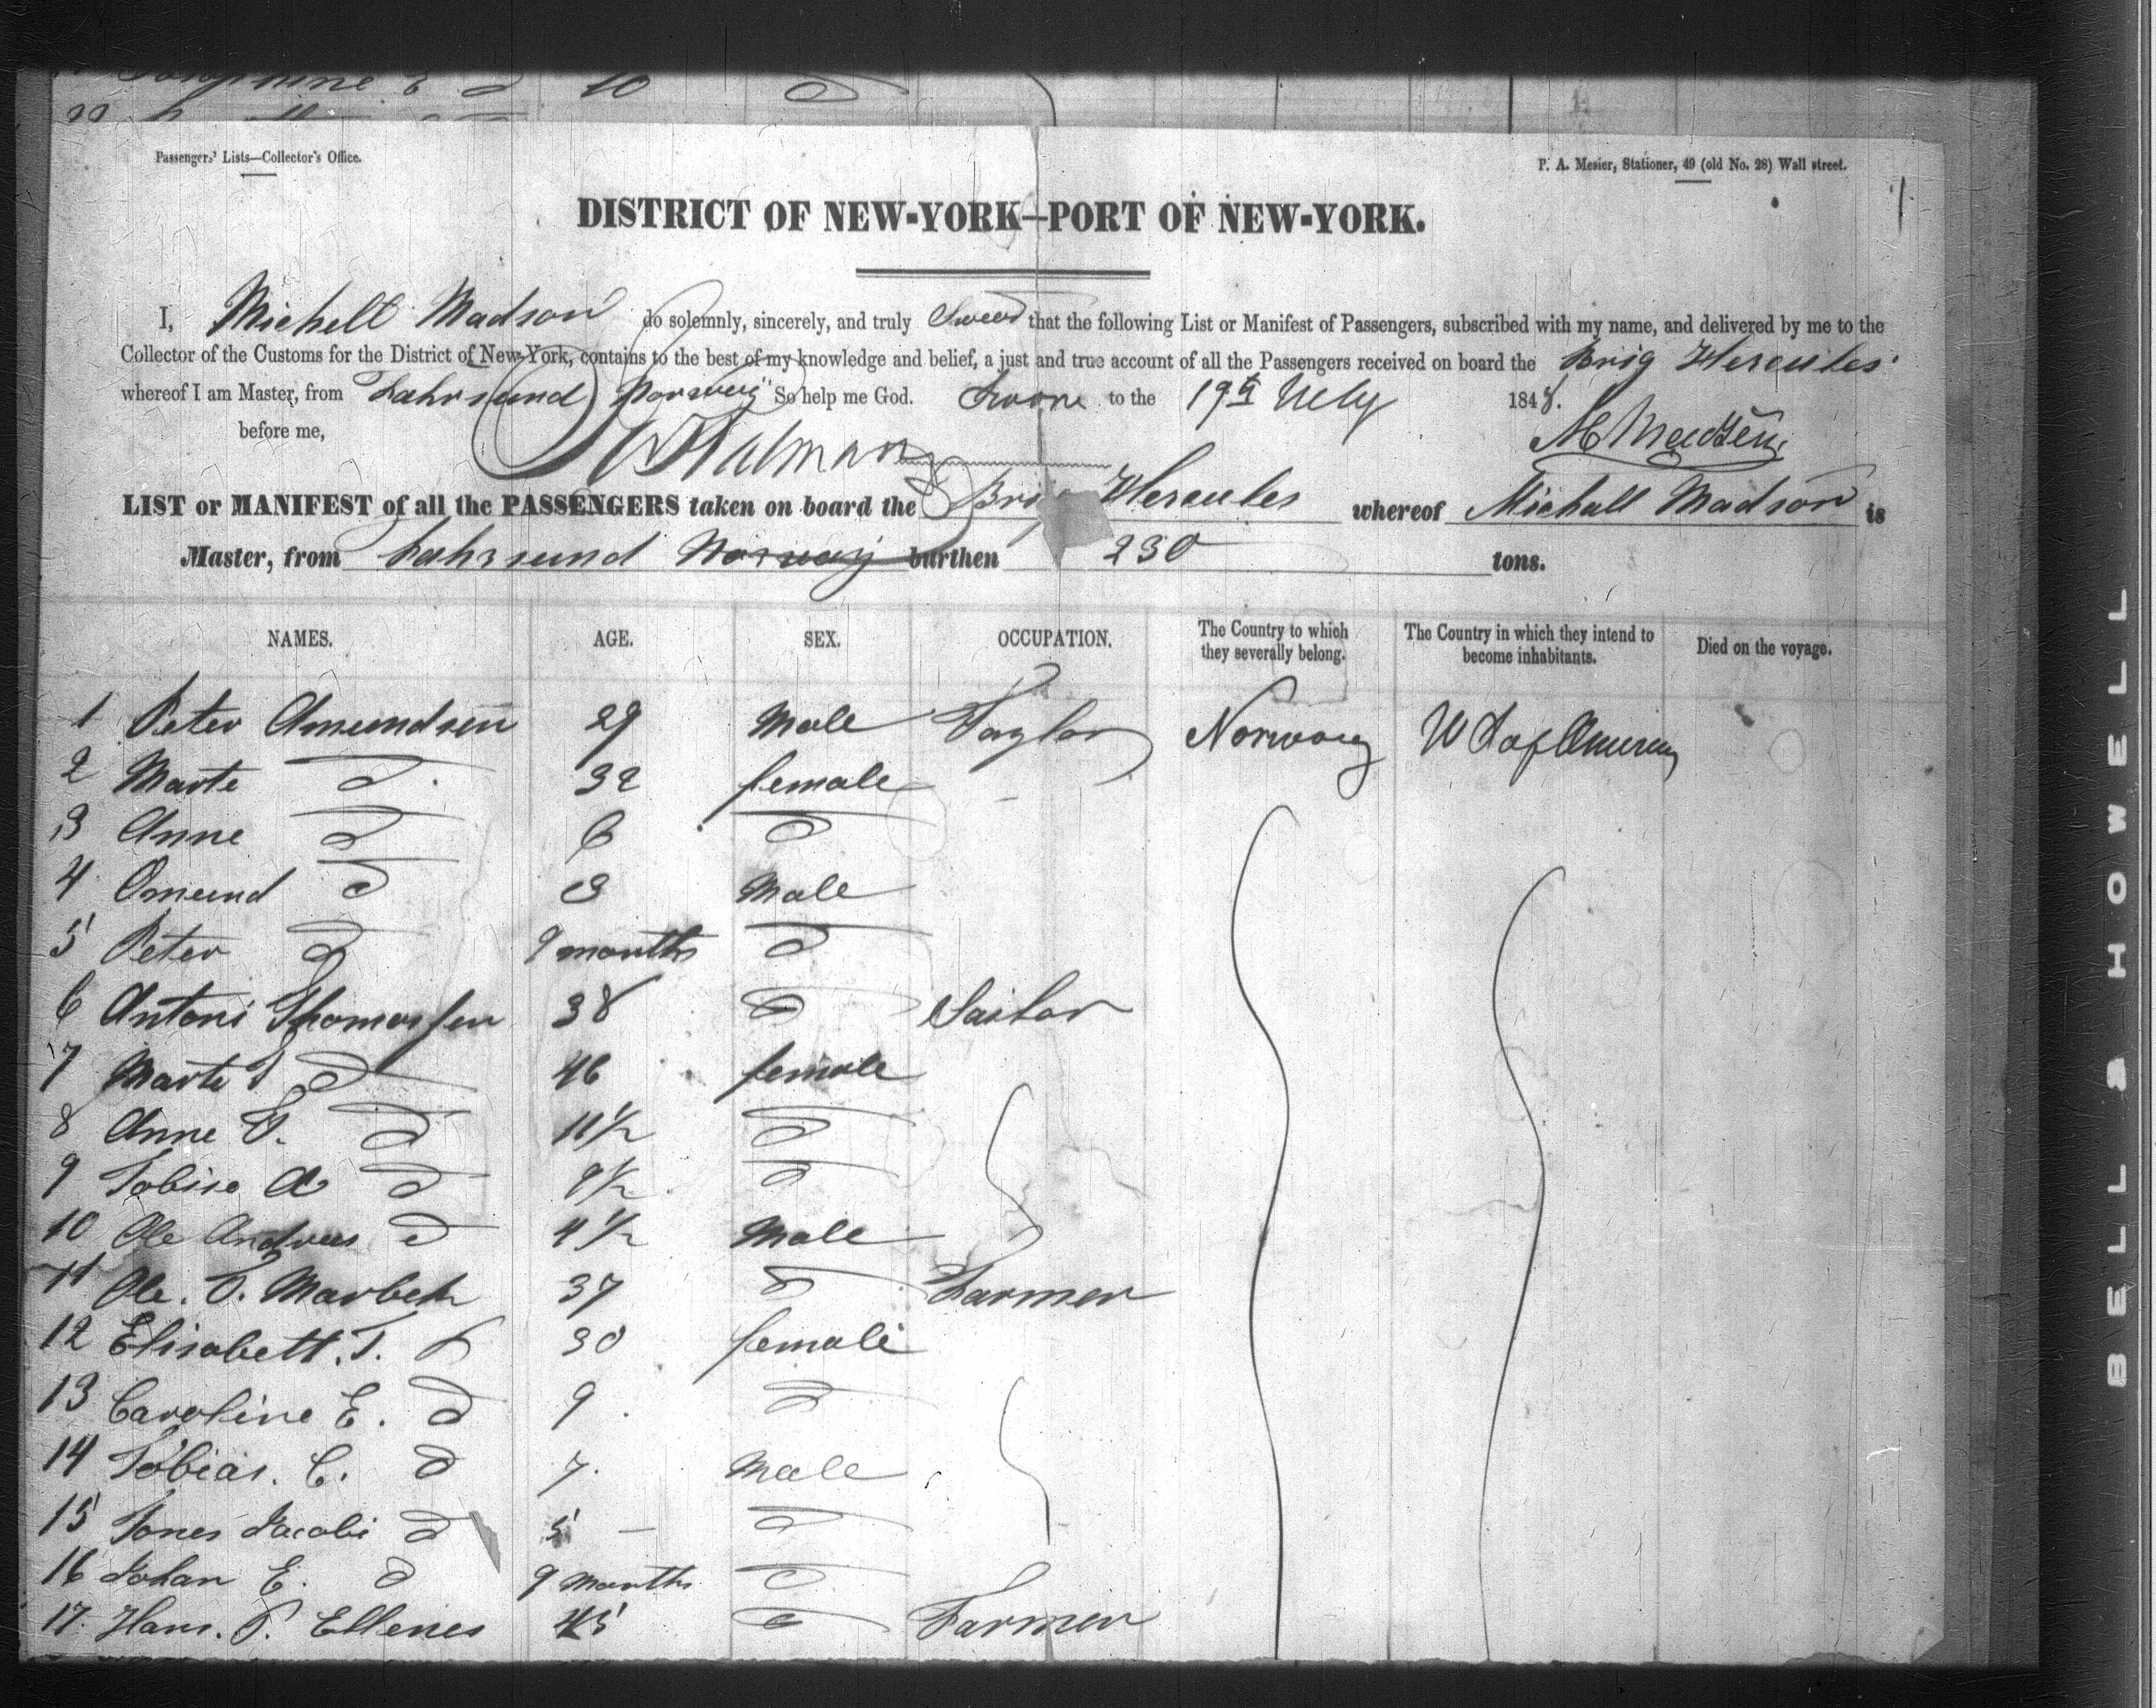 Josephine E d 10 d
Passengers' Lists—Collector's Office.
P. A. Mesier, Stationer, 49 (old No. 28) Wall street.
1
DISTRICT OF NEW-YORK—PORT OF NEW-YORK.
I, Michell Madson do solemnly, sincerely, and truly Swear that the following List or Manifest of Passengers, subscribed with my name, and delivered by me to the
Collector of the Customs for the District of New-York, contains to the best of my knowledge and belief, a just and true account of all the Passengers received on board the Brig Hercules
whereof I am Master, from Fahrsund Norway So help me God. Sworn to the 19th July 1848.
before me,
M Madsen
LIST or MANIFEST of all the PASSENGERS taken on board the Brig Hercules whereof Michall Madson is
Master, from Fahrsund Norway burthen 230 tons.
NAMES. AGE. SEX. OCCUPATION. The Country to which they severally belong. The Country in which they intend to become inhabitants. Died on the voyage.
1 Peter Amundsen 29 Male Taylor Norway U S of America
2 Marte d. 32 female
3 Anne d 6 d
4 Omund d 3 Male
5 Peter d 9 months d
6 Antoni Thomassen 38 d Sailor
7 Marte T d 46 female
8 Anne T. d 11½ d
9 Tobine A d 9½ d
10 Ole Andreas d 4½ Male
11 Ole. T. Marbek 37 d Farmer
12 Elisabett. T. d 30 female
13 Caroline E. d 9. d
14 Tobias. C. d 7. Male
15 Tones Jacobi d 5 — d
16 Johan E. d 9 months d
17. Hans. P. Ellenes 45 d Farmer
BELL & HOWELL